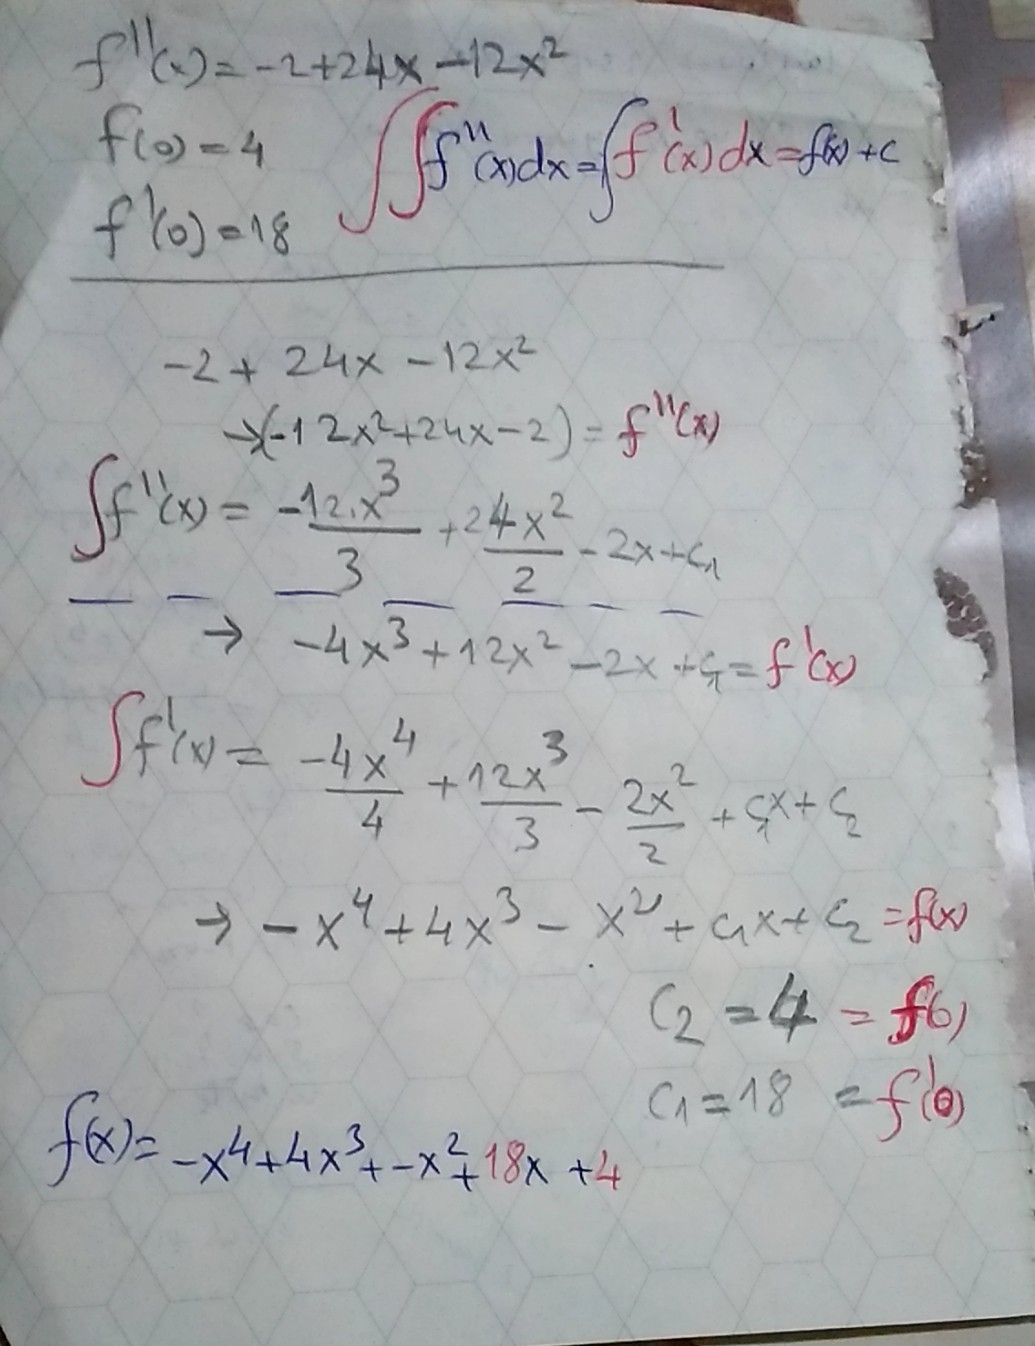 f''(x) = -2+24x-12x²
f(0) = 4
∫∫f''(x)dx = ∫f'(x)dx = f(x)+c
f'(0) = 18
-2 + 24x - 12x²
→(-12x²+24x-2) = f''(x)
∫f''(x) = -12.x³/3 + 24x²/2 - 2x + c₁
→ -4x³ + 12x² - 2x + c₁ = f'(x)
∫f'(x) = -4x⁴/4 + 12x³/3 - 2x²/2 + c₁x + c₂
→ -x⁴ + 4x³ - x² + c₁x + c₂ = f(x)
c₂ = 4 = f(0)
c₁ = 18 = f'(0)
f(x) = -x⁴+4x³+-x²+18x+4